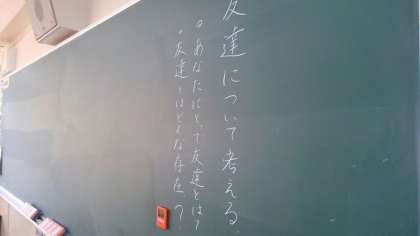 友達について考える
。あなたにとって友達とは?
・友達とはどんな存在?